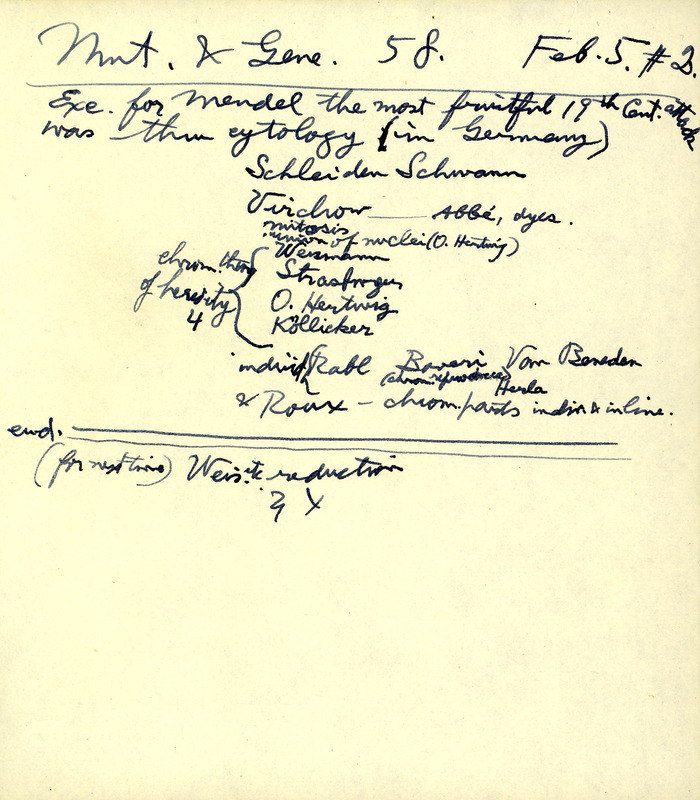 Mut. & Gene. 58. Feb. 5. #2.
Exc. for Mendel the most fruitful 19th Cent. attack
was thru cytology (in Germany)
Schleiden Schwann
Virchow — Abbé, dyes.
mitosis
union of nuclei (O. Hertwig)
chrom. thry of heredity 4
Weismann
Strasburger
O. Hertwig
Köllicker
individ Rabl Boveri Van Beneden
Herla
& Roux – chrom. parts indiv. & in line.
end.
(for next time) Weis. reduction